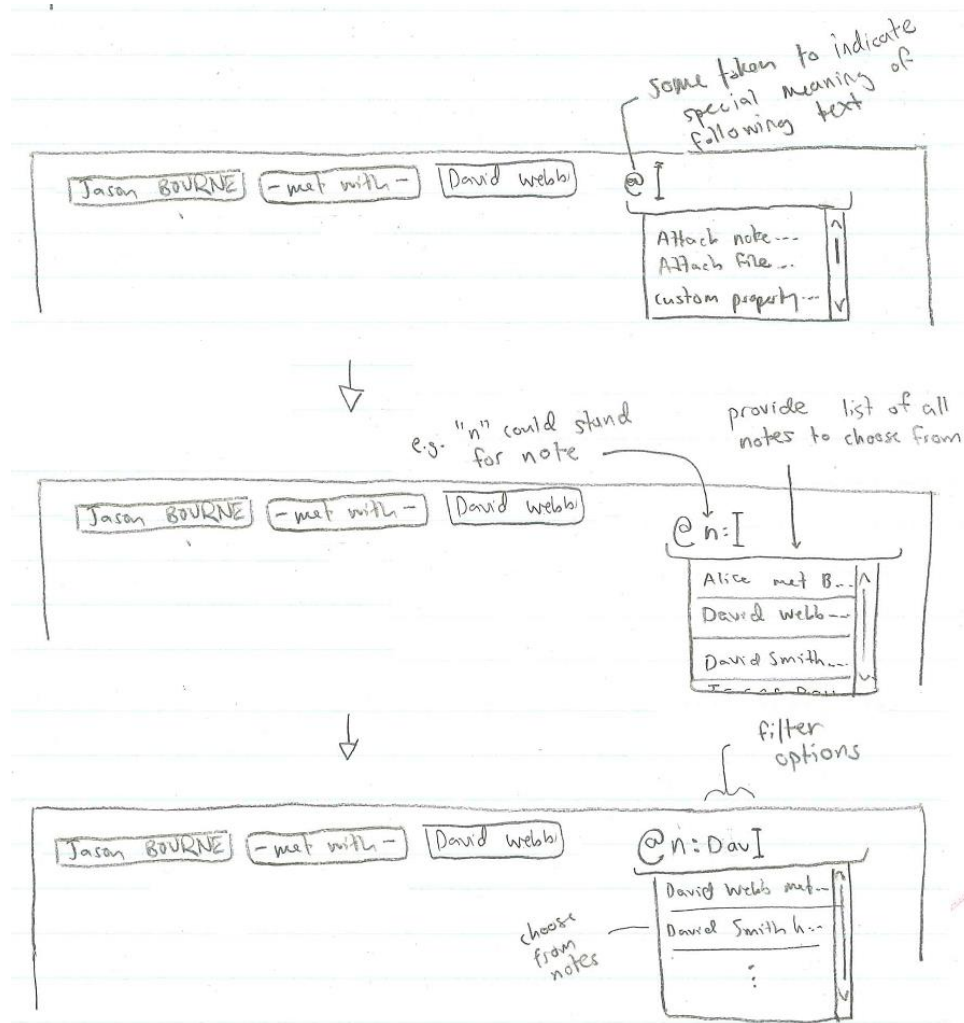 some token to indicate
special meaning of
following text
Jason BOURNE
- met with -
David webb
@
Attach note...
Attach file...
custom property...
e.g. "n" could stand
for note
provide list of all
notes to choose from
Jason BOURNE
- met with -
David webb
@ n:
Alice met B...
David webb...
David Smith...
filter
options
Jason BOURNE
- met with -
David webb
@n:Dav
David Webb met...
David Smith h...
choose
from
notes